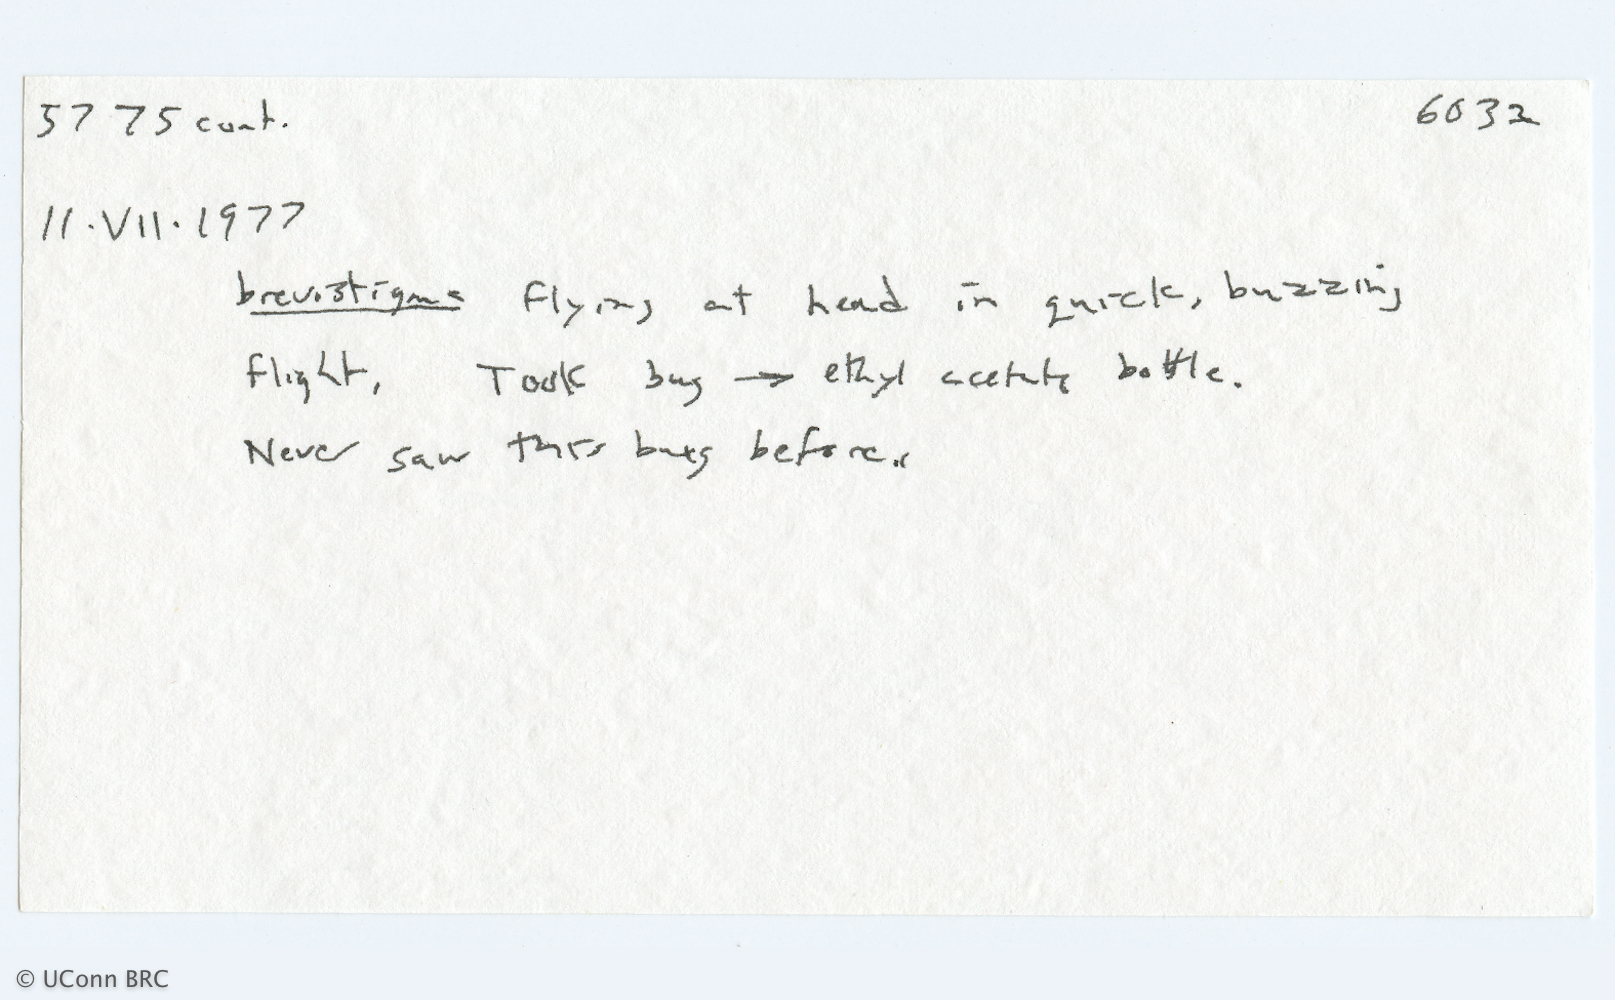 5775 cont. 6032
11.VII.1977
brevistigma flying at head in quick, buzzing
flight, Took bug → ethyl acetate bottle.
Never saw this bug before.
© UConn BRC